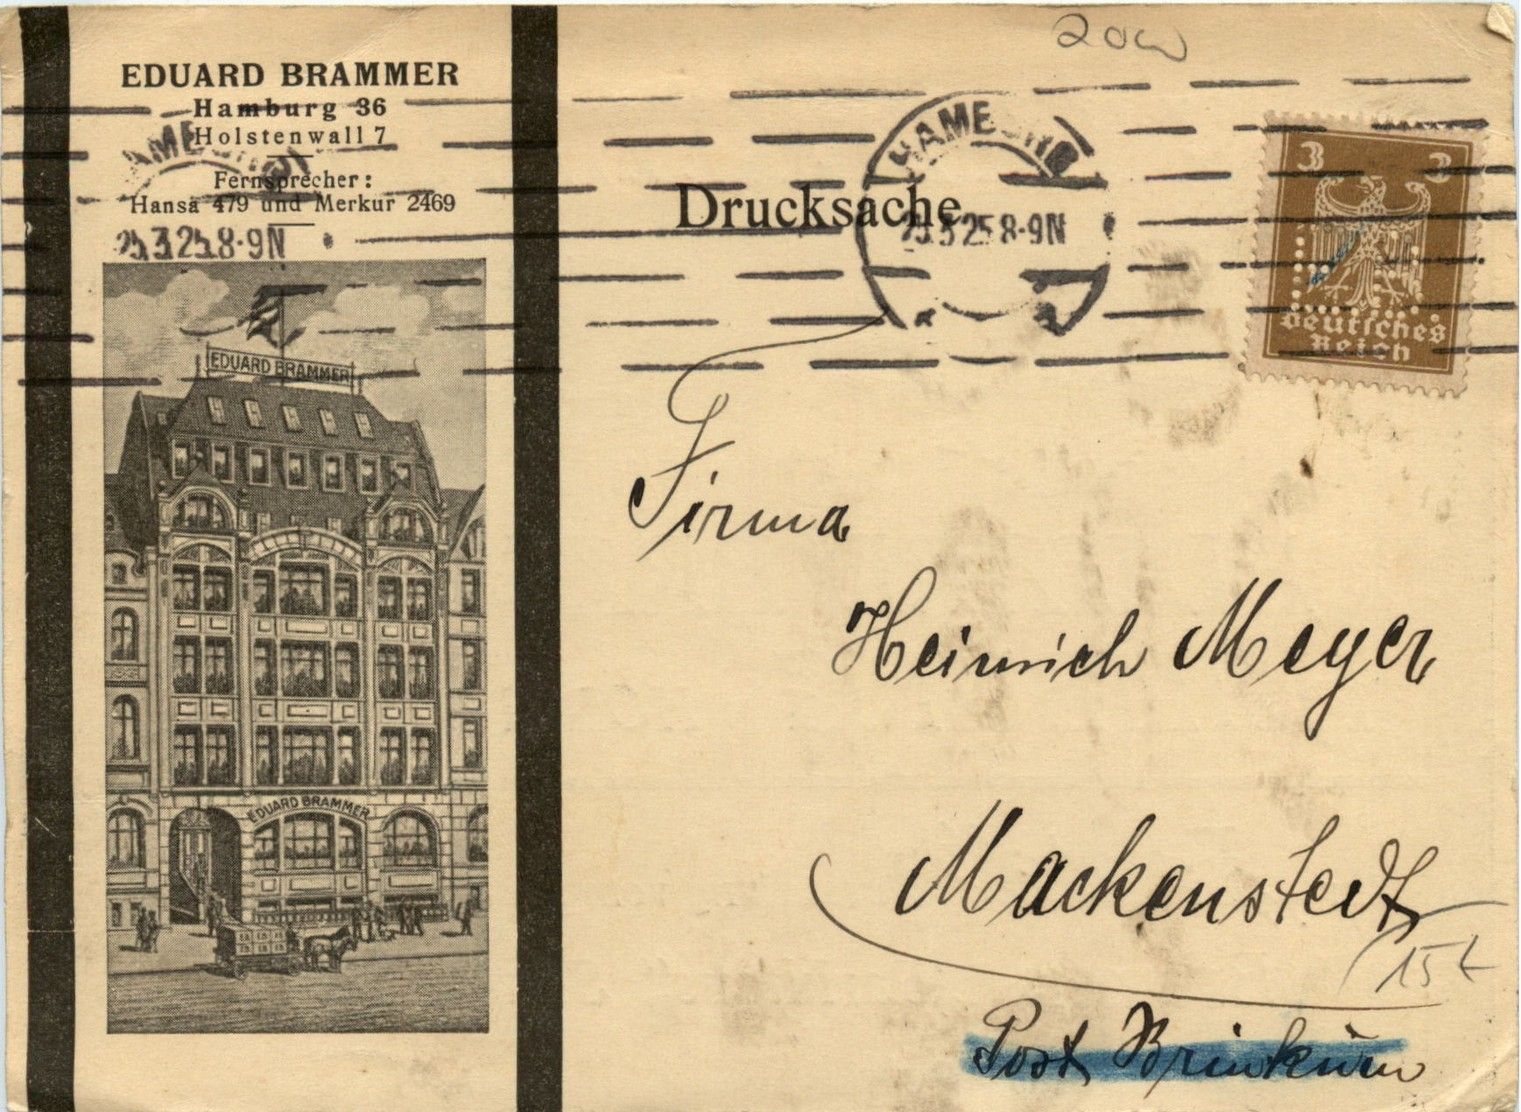 20
EDUARD BRAMMER
Hamburg 36
Holstenwall 7
Fernsprecher:
Hansa 479 und Merkur 2469
HAMBURG
25.3.25.8-9N
Drucksache
HAMBURG
25.3.25 8-9N
3 3
Deutsches
Reich
EDUARD BRAMMER
EDUARD BRAMMER
Firma
Heinrich Meyer
Mackenstedt
15
Post Brinkum